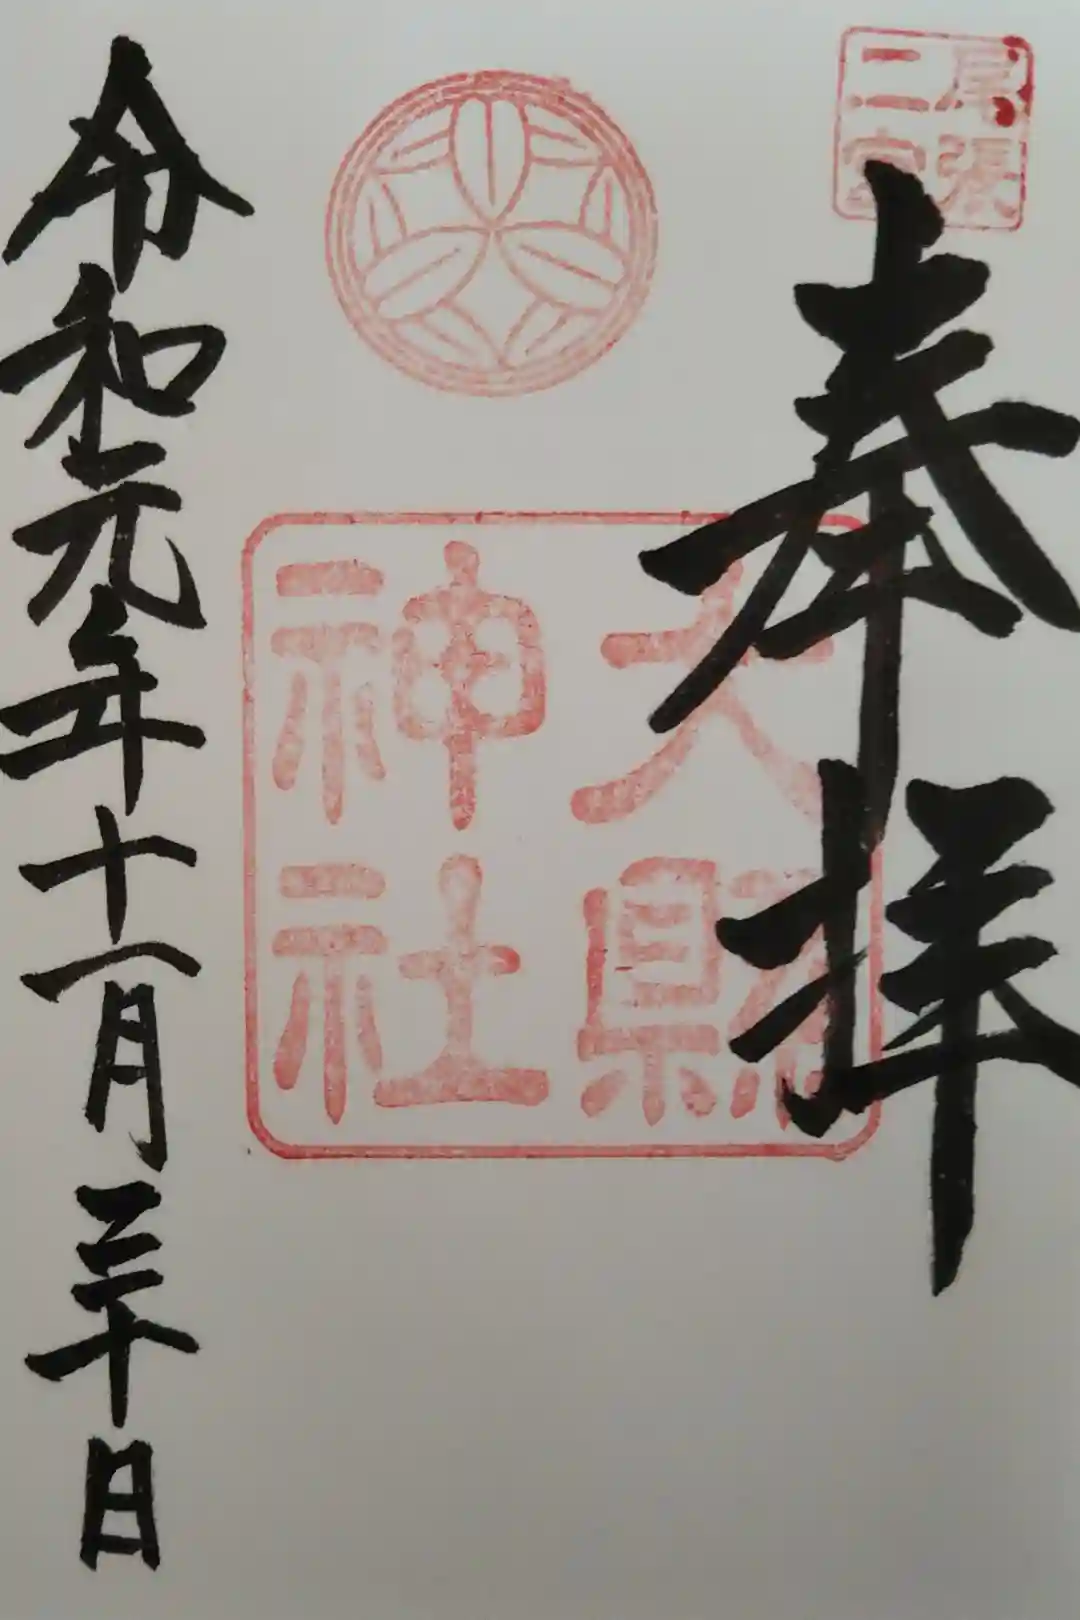 尾張
二宮
奉拝
大縣
神社
令和元年十一月三十日